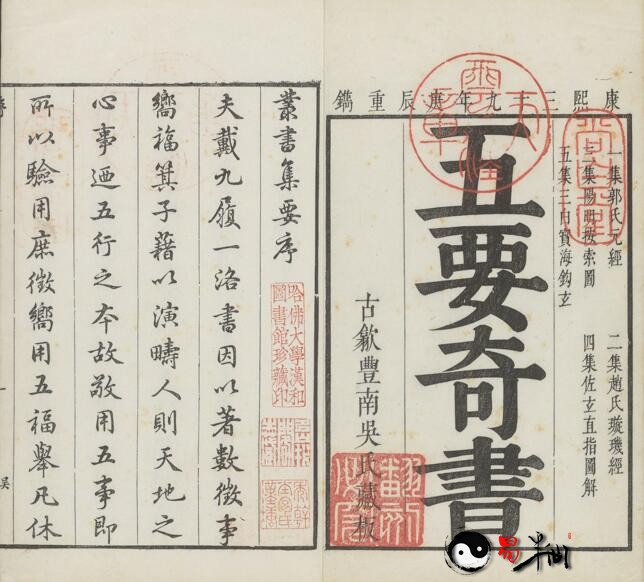 康熙三十九年庚辰重鐫
一集郭氏元經
二集趙氏璇璣經
三集陽明按索圖
四集佐玄直指圖解
五集三白寶海鈎玄
五要奇書
古歙豐南吳氏藏板
叢書集要序
夫戴九履一洛書因以著數徵事
嚮福箕子藉以演疇人則天地之
心事廼五行之夲故敬用五事即
所以驗用庶徵嚮用五福舉凡休
哈佛大學漢和
圖書館珍藏印
一
吳